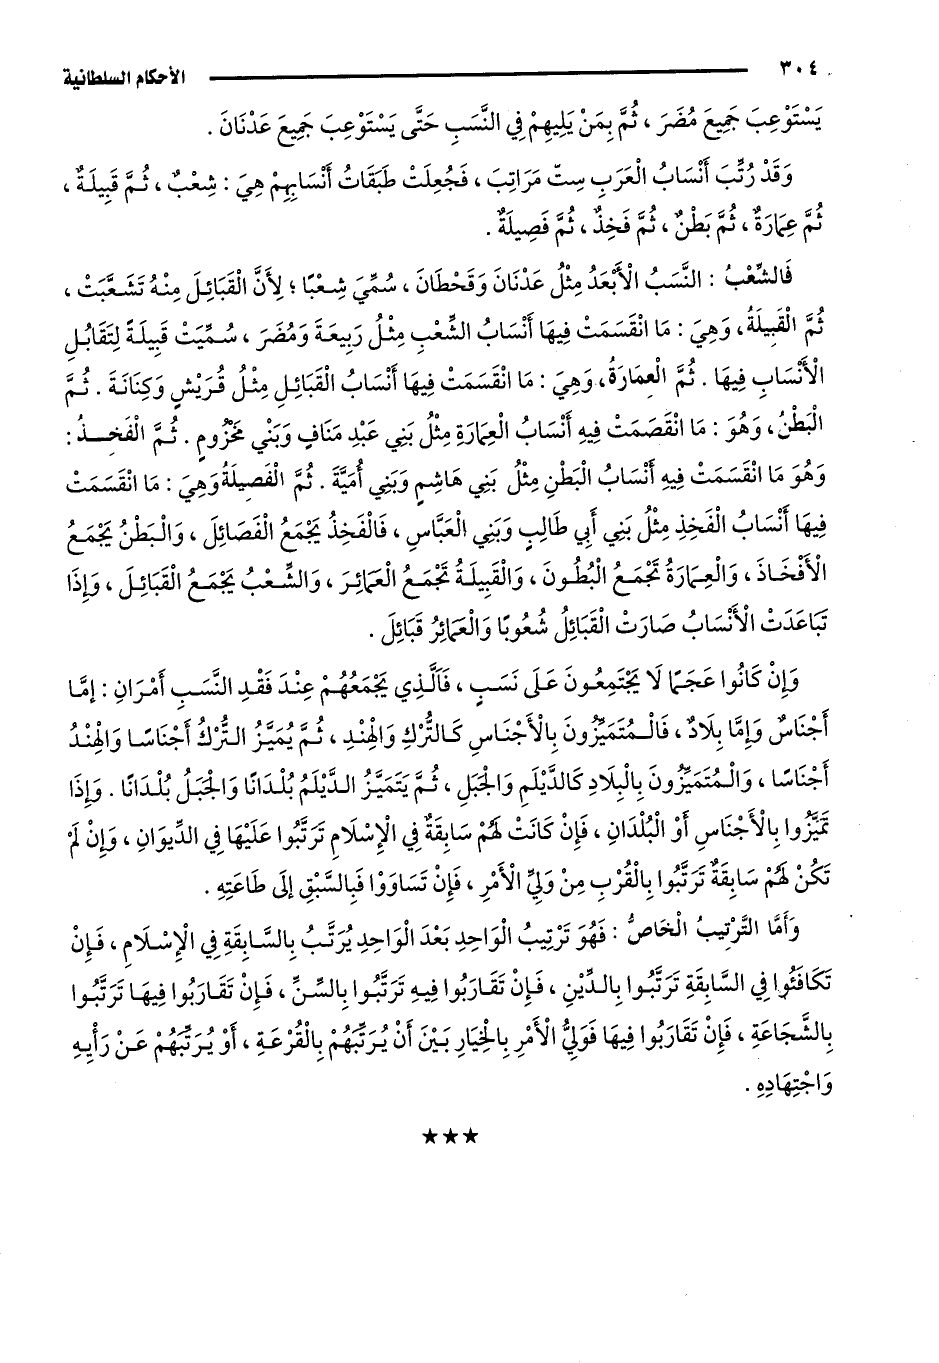 ٣٠٤ الأحكام السلطانية
يَسْتَوْعِبَ جَمِيعَ مُضَرَ ، ثُمَّ بِمَنْ يَلِيهِمْ فِي النَّسَبِ حَتَّى يَسْتَوْعِبَ جَمِيعَ عَدْنَانَ .
وَقَدْ رُتِّبَ أَنْسَابُ الْعَرَبِ سِتّ مَرَاتِبَ ، فَجُعِلَتْ طَبَقَاتُ أَنْسَابِهِمْ هِيَ : شِعْبٌ ، ثُمَّ قَبِيلَةٌ ،
ثُمَّ عِمَارَةٌ ، ثُمَّ بَطْنٌ ، ثُمَّ فَخِذٌ ، ثُمَّ فَصِيلَةٌ .
فَالشِّعْبُ : النَّسَبُ الْأَبْعَدُ مِثْلُ عَدْنَانَ وَقَحْطَانَ ، سُمِّيَ شِعْبًا ؛ لِأَنَّ الْقَبَائِلَ مِنْهُ تَشَعَّبَتْ ،
ثُمَّ الْقَبِيلَةُ، وَهِيَ : مَا انْقَسَمَتْ فِيهَا أَنْسَابُ الشِّعْبِ مِثْلُ رَبِيعَةَ وَمُضَرَ ، سُمِّيَتْ قَبِيلَةً لِتَقَابُلِ
الْأَنْسَابِ فِيهَا . ثُمَّ الْعِمَارَةُ، وَهِيَ : مَا انْقَسَمَتْ فِيهَا أَنْسَابُ الْقَبَائِلِ مِثْلُ قُرَيْشٍ وَكِنَانَةَ . ثُمَّ
الْبَطْنُ، وَهُوَ : مَا انْقَصَمَتْ فِيهِ أَنْسَابُ الْعِمَارَةِ مِثْلُ بَنِي عَبْدِ مَنَافٍ وَبَنِي مَخْزُومٍ . ثُمَّ الْفَخِذُ :
وَهُوَ مَا انْقَسَمَتْ فِيهِ أَنْسَابُ الْبَطْنِ مِثْلُ بَنِي هَاشِمٍ وَبَنِي أُمَيَّةَ . ثُمَّ الْفَصِيلَةُ وَهِيَ : مَا انْقَسَمَتْ
فِيهَا أَنْسَابُ الْفَخِذِ مِثْلُ بَنِي أَبِي طَالِبٍ وَبَنِي الْعَبَّاسِ ، فَالْفَخِذُ يَجْمَعُ الْفَصَائِلَ ، وَالْبَطْنُ يَجْمَعُ
الْأَفْخَاذَ ، وَالْعِمَارَةُ تَجْمَعُ الْبُطُونَ ، وَالْقَبِيلَةُ تَجْمَعُ الْعَمَائِرَ ، وَالشِّعْبُ يَجْمَعُ الْقَبَائِلَ ، وَإِذَا
تَبَاعَدَتْ الْأَنْسَابُ صَارَتْ الْقَبَائِلُ شُعُوبًا وَالْعَمَائِرُ قَبَائِلَ .
وَإِنْ كَانُوا عَجَمًا لَا يَجْتَمِعُونَ عَلَى نَسَبٍ ، فَاَلَّذِي يَجْمَعُهُمْ عِنْدَ فَقْدِ النَّسَبِ أَمْرَانِ : إمَّا
أَجْنَاسٌ وَإِمَّا بِلَادٌ ، فَالْمُتَمَيِّزُونَ بِالْأَجْنَاسِ كَالتُّرْكِ وَالْهِنْدِ ، ثُمَّ يُمَيَّزُ التُّرْكُ أَجْنَاسًا وَالْهِنْدُ
أَجْنَاسًا ، وَالْمُتَمَيِّزُونَ بِالْبِلَادِ كَالدَّيْلَمِ وَالْجَبَلِ ، ثُمَّ يَتَمَيَّزُ الدَّيْلَمُ بُلْدَانًا وَالْجَبَلُ بُلْدَانًا . وَإِذَا
تَمَيَّزُوا بِالْأَجْنَاسِ أَوْ الْبُلْدَانِ ، فَإِنْ كَانَتْ لَهُمْ سَابِقَةٌ فِي الْإِسْلَامِ تَرَتَّبُوا عَلَيْهَا فِي الدِّيوَانِ ، وَإِنْ لَمْ
تَكُنْ لَهُمْ سَابِقَةٌ تَرَتَّبُوا بِالْقُرْبِ مِنْ وَلِيِّ الْأَمْرِ ، فَإِنْ تَسَاوَوْا فَبِالسَّبْقِ إلَى طَاعَتِهِ .
وَأَمَّا التَّرْتِيبُ الْخَاصُّ : فَهُوَ تَرْتِيبُ الْوَاحِدِ بَعْدَ الْوَاحِدِ يُرَتَّبُ بِالسَّابِقَةِ فِي الْإِسْلَامِ ، فَإِنْ
تَكَافَئُوا فِي السَّابِقَةِ تَرَتَّبُوا بِالدِّيْنِ ، فَإِنْ تَقَارَبُوا فِيهِ تَرَتَّبُوا بِالسِّنِّ ، فَإِنْ تَقَارَبُوا فِيهَا تَرَتَّبُوا
بِالشَّجَاعَةِ ، فَإِنْ تَقَارَبُوا فِيهَا فَوَلِيُّ الْأَمْرِ بِالْخِيَارِ بَيْنَ أَنْ يُرَتِّبَهُمْ بِالْقُرْعَةِ ، أَوْ يُرَتِّبَهُمْ عَنْ رَأْيِهِ
وَاجْتِهَادِهِ .
★★★